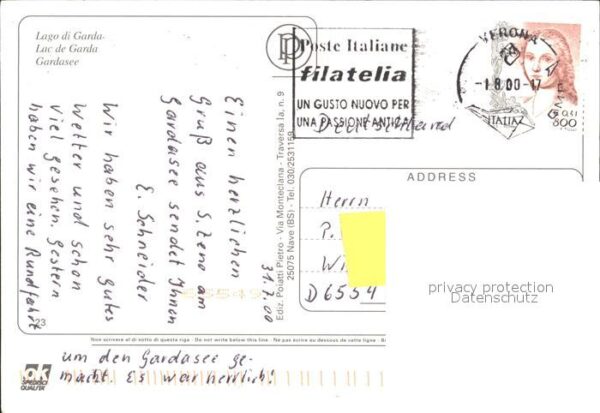 Lago di Garda-
Lac de Garda
Gardasee
PP
Poste Italiane
filatelia
UN GUSTO NUOVO PER
UNA PASSIONE ANTICA
VERONA
-1.8.00-17
ITALIA
800
Deutschland
31.7.00
Einen herzlichen
Gruß aus S. Zeno am
Gardasee sendet Ihnen
E. Schneider
Wir haben sehr gutes
Wetter und schon
viel gesehen. Gestern
haben wir eine Rundfahrt
um den Gardasee ge-
macht. Es war herrlich!
Ediz. Poiatti Pietro - Via Monteclana - Traversa Ia, n. 9
25075 Nave (BS) - Tel. 030/2531159
ADDRESS
Herrn
P.
Wi
D 6554
privacy protection
Datenschutz
Non scrivere al di sotto di questa riga - Do not write below this line - Ne pas écrire au dessous de cette ligne
ok
SPEDIRE
QUALITÀ